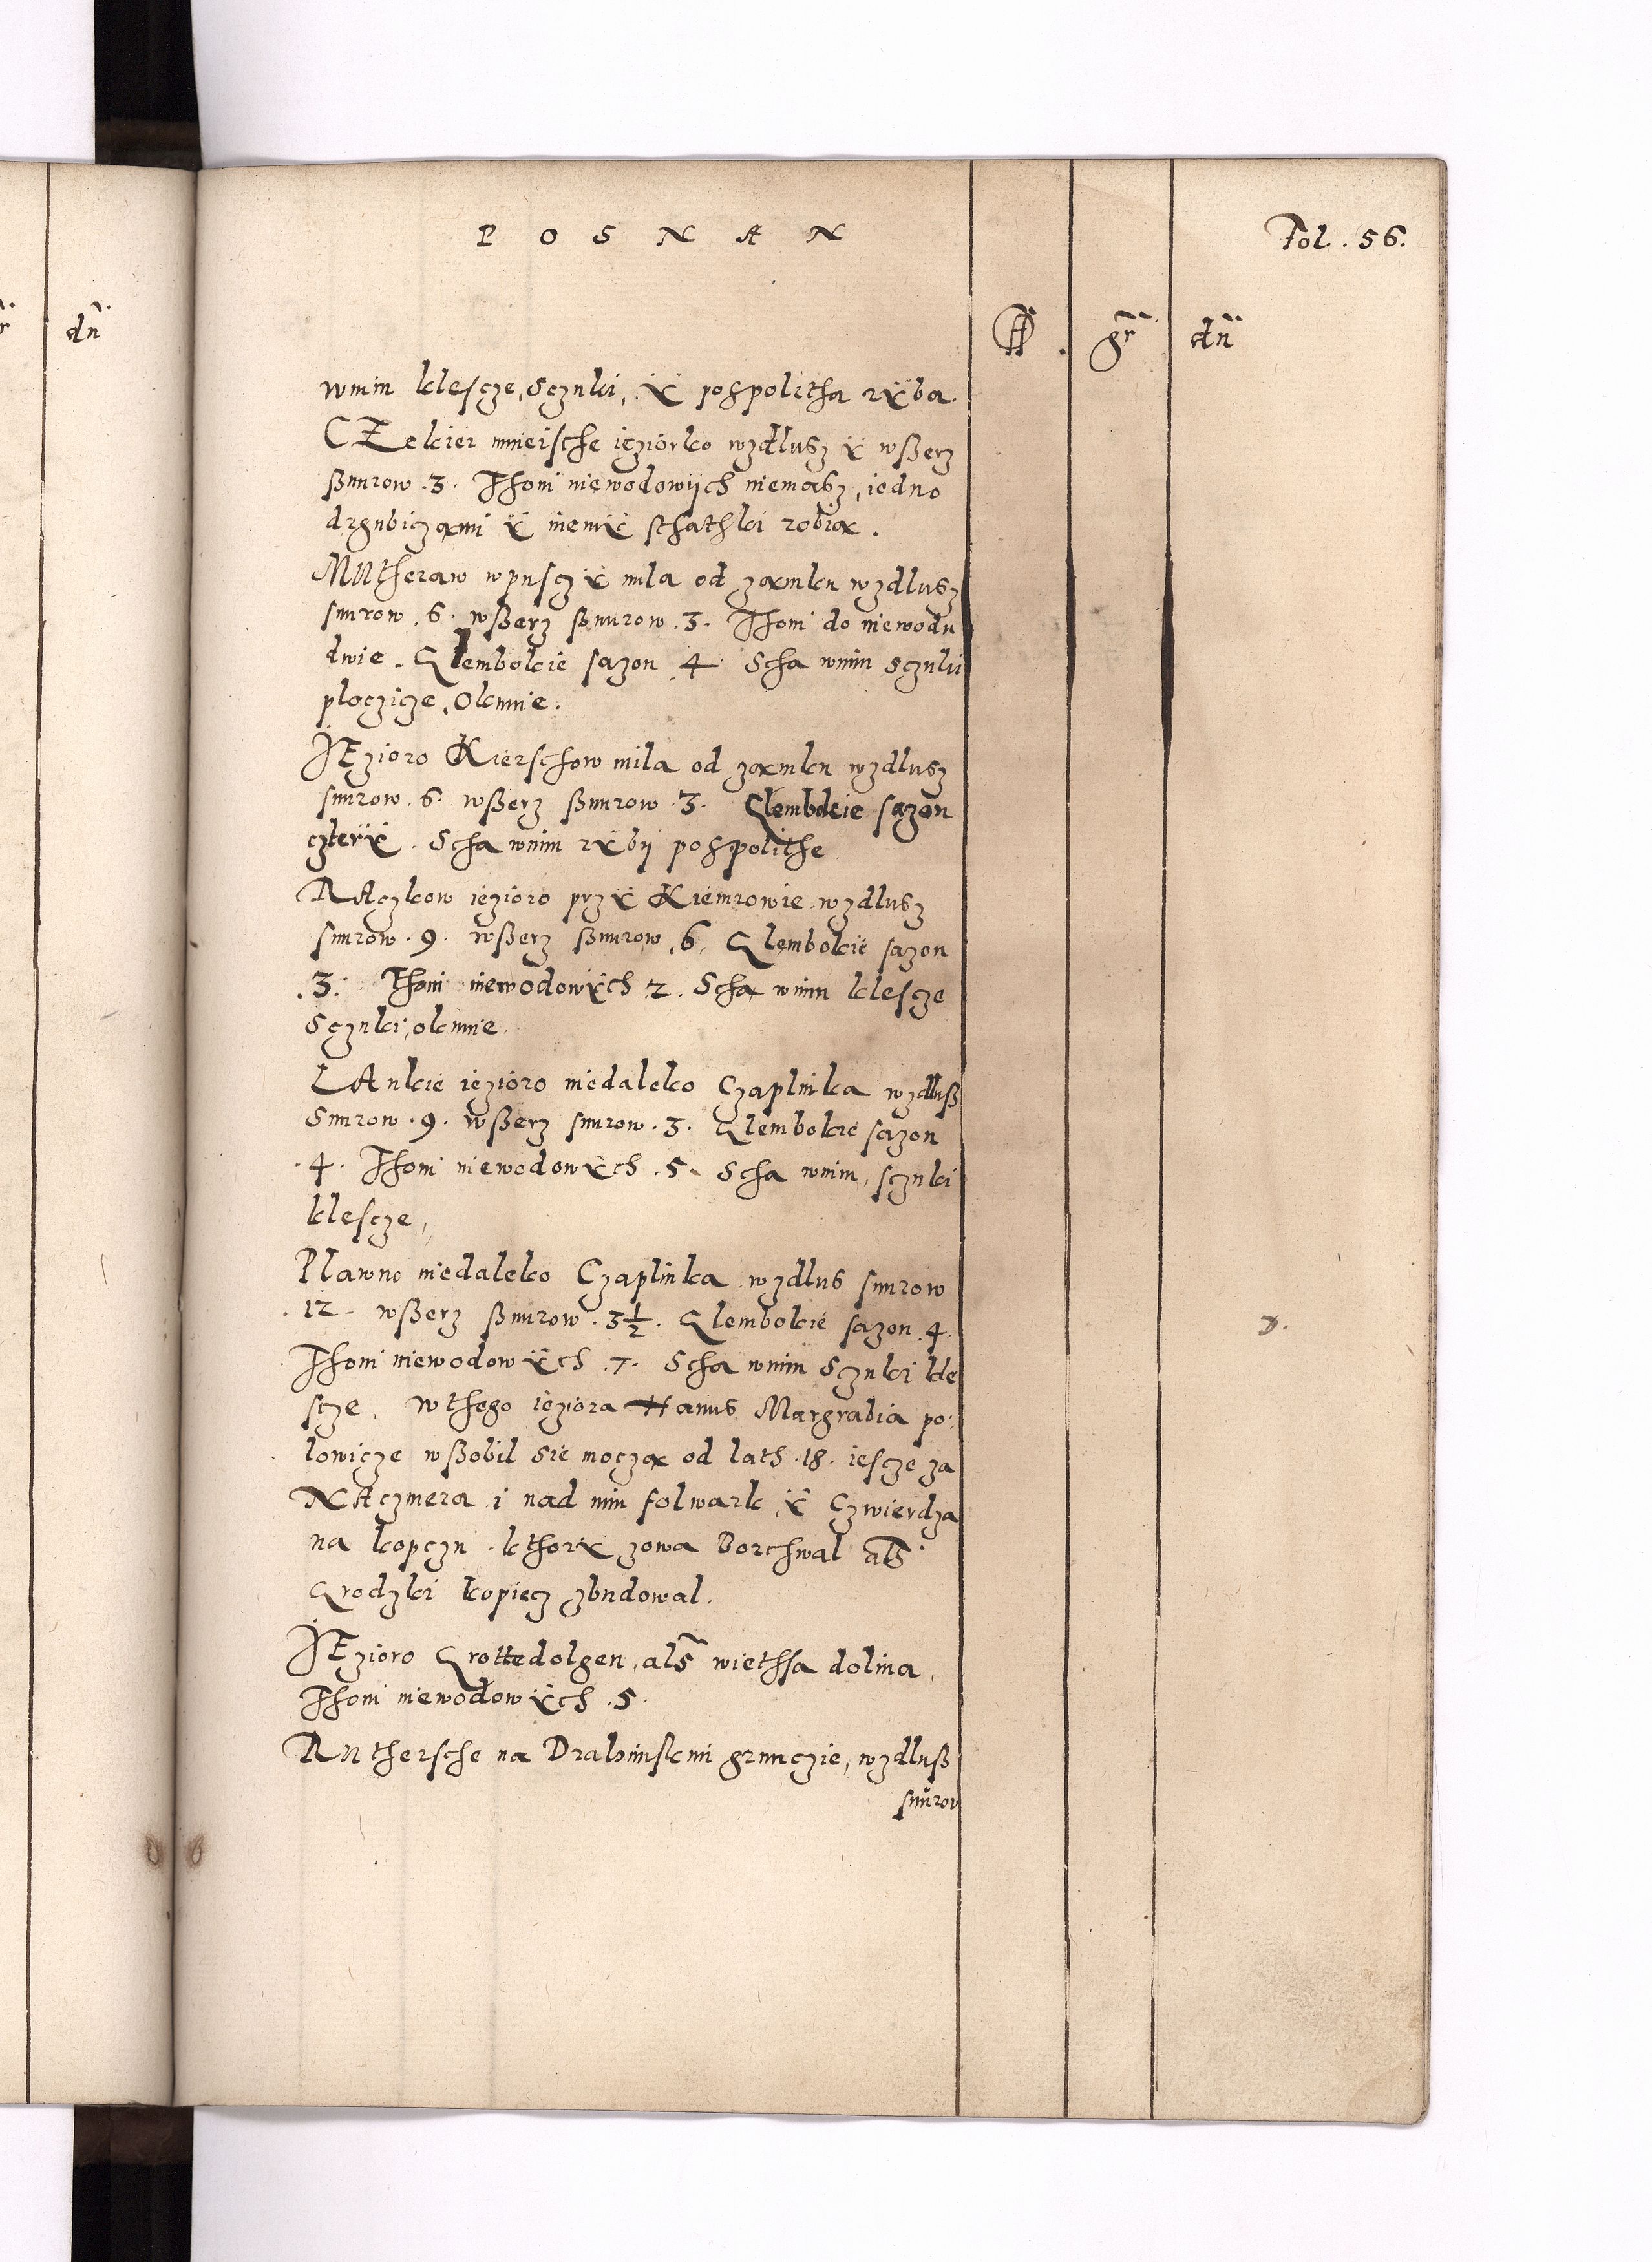 POSNAN
Fol. 56.
dn̄
fl. gr̄ dn̄
wnim klescze, Sczuki, ÿ pospolitha rÿba
CZekier mnieische ieziorko wzdlusz ÿ wßerz
ßnurow .3. Thoni niewodowÿch niemasz, iedno
drgubiczami ÿ niemÿ sthathki robią.
MUtheraw wpusczÿ mila od zamku wzdlusz
snurow .6. wßerz ßnurow .3. Thoni do niewodu
dwie. Glembokie sazon .4. Scha wnim sczuki
ploczicze, Okunie.
JEzioro Kierschow mila od zamku wzdlusz
snurow .6. wßerz ßnurow .3. Glembokie sązon
czterÿ. Scha wnim rÿbÿ pospolithe
RAczkow iezioro przÿ Kiemrowie wzdlusz
snurow .9. wßerz ßnurow .6. Glembokie sazon
.3. Thoni niewodowÿch 2. Scha wnim klescze
Sczuki, okunie.
LAnkie iezioro niedaleko Czaplinka wzdluß
Snurow .9. wßerz snurow .3. Glembokie sązon
.4. Thoni niewodowÿch .5. Scha wnim, sczuki
klescze,
Plawno niedaleko Czaplinka wzdlus snurow
.12. wßerz ßnurow .3½. Glembokie sazon .4.
Thoni niewodowÿch .7. Scha wnim Sczuki kle
scze. W thego ieziora Hanus Margrabia po:
lowicze wßobil sie moczą od lath .18. iescze za
NAczmera i nad nim folwark ÿ Czwierdza
na kopczu kthorÿ zowa Borchwal als̄
Grodzki kopiecz zbudowal.
JEzioro Grottedolgen, als̄ wiethsa dolina,
Thoni niewodowÿch .5.
RUthersche na Drahimskim grunczie, wzdluß
snurow